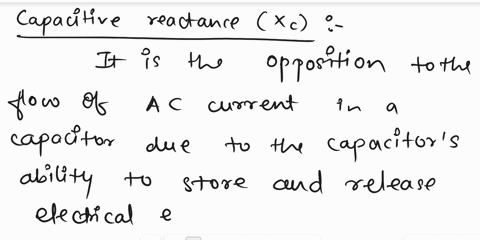 Capacitive reactance (Xc) :-
It is the opposition to the
flow of AC current in a
capacitor due to the capacitor's
ability to store and release
electical e